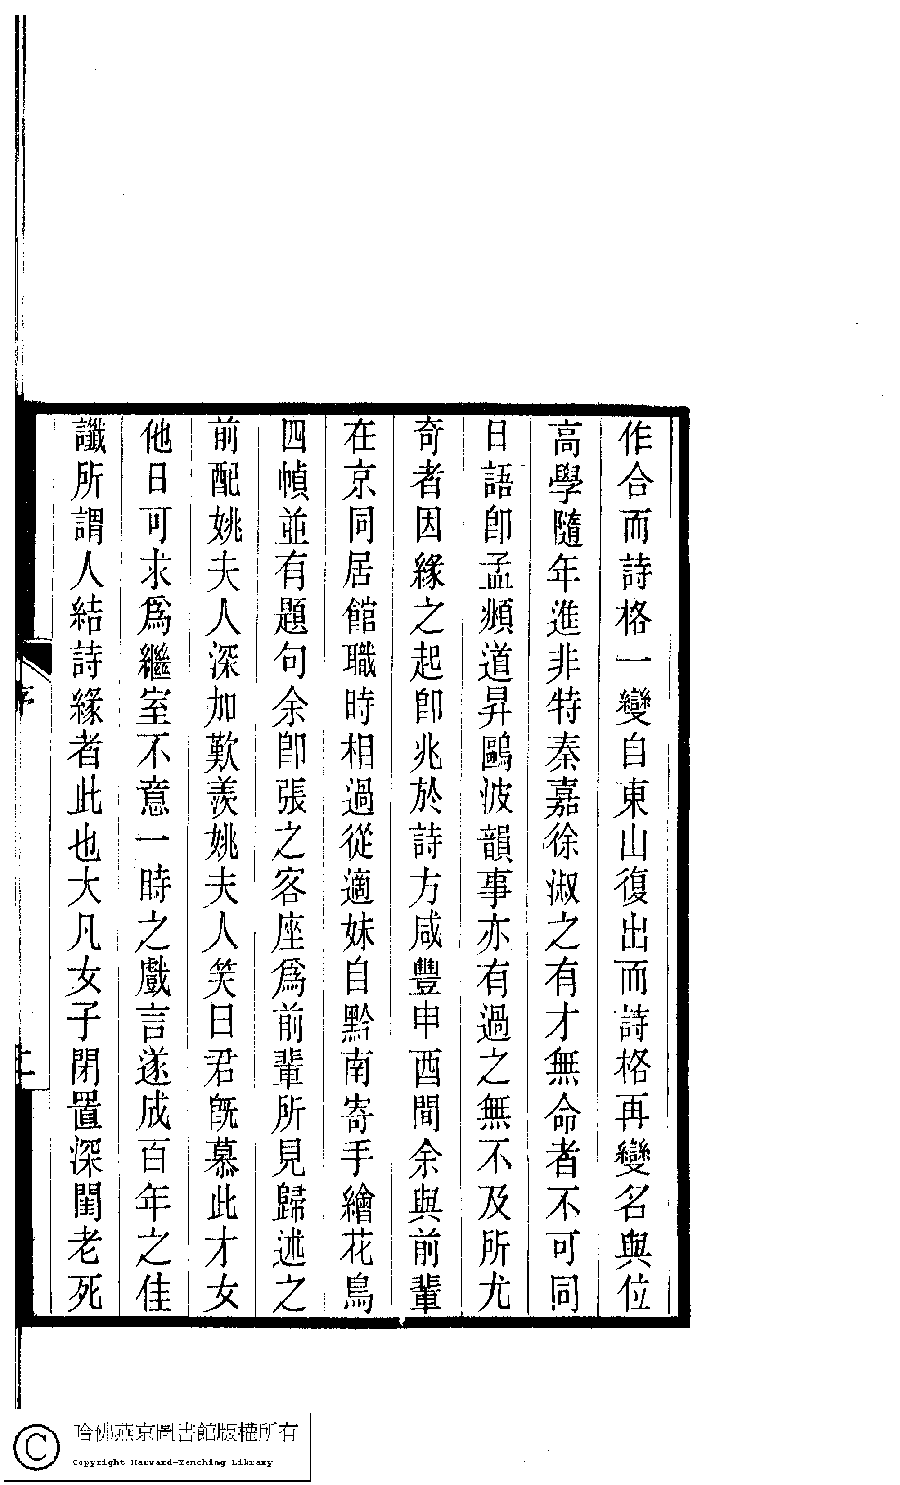 作合而詩格一變自東山復出而詩格再變名與位
高學隨年進非特秦嘉徐淑之有才無命者不可同
日語卽孟頫道昇鷗波韻事亦有過之無不及所尤
奇者因緣之起卽兆於詩方咸豐申酉間余與前輩
在京同居館職時相過從適妹自黔南寄手繪花鳥
四幀並有題句余卽張之客座爲前輩所見歸述之
前配姚夫人深加歎羨姚夫人笑曰君旣慕此才女
他日可求爲繼室不意一時之戲言遂成百年之佳
讖所謂人結詩緣者此也大凡女子閉置深閨老死
序
上
哈佛燕京圖書館版權所有
Copyright Harvard-Yenching Library